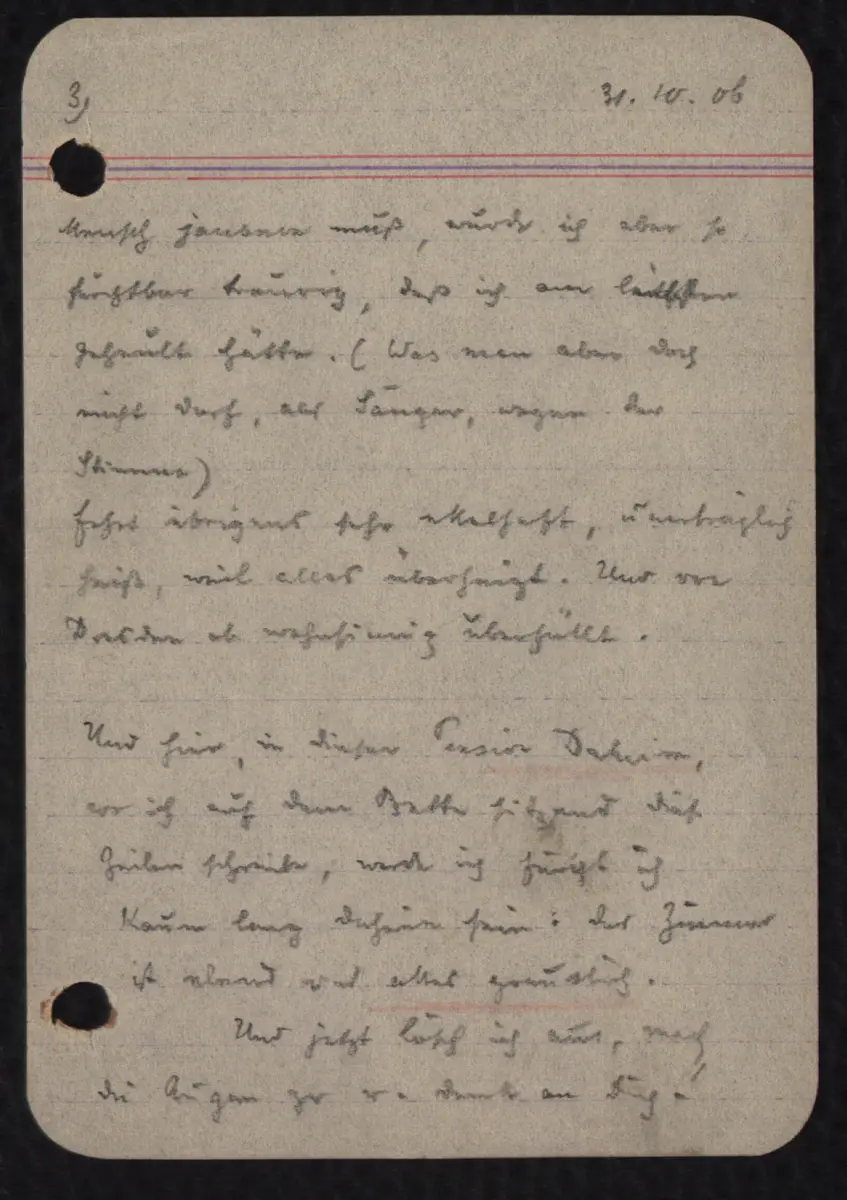 3)
31. 10. 06
Mensch muß, wurde ich aber so
furchtbar traurig, daß ich am liebsten
geheult hätte. (Was man aber doch
nicht darf, als Sänger, wegen der
Stimme)
Fahrt übrigens sehr ekelhaft, unerträglich
heiß, weil alles überheizt. Und von
Dresden ab wahnsinnig überfüllt.
Und hier, in dieser Pension Daheim,
wo ich auf dem Bette sitzend diese
Zeilen schreibe, werde ich fürcht ich
kaum lang daheim sein: das Zimmer
ist elend und alles grauslich.
Und jetzt lösch ich aus, mach
die Augen zu u. denk an Dich!